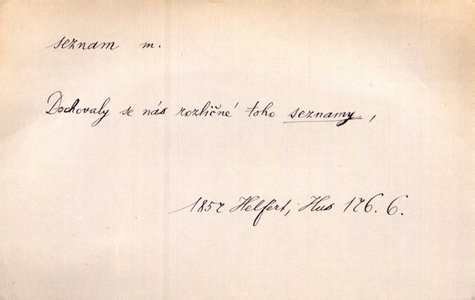 seznam m.
Dochovaly se nás rozličné toho seznamy,
1857 Helfert, Hus 176. 6.